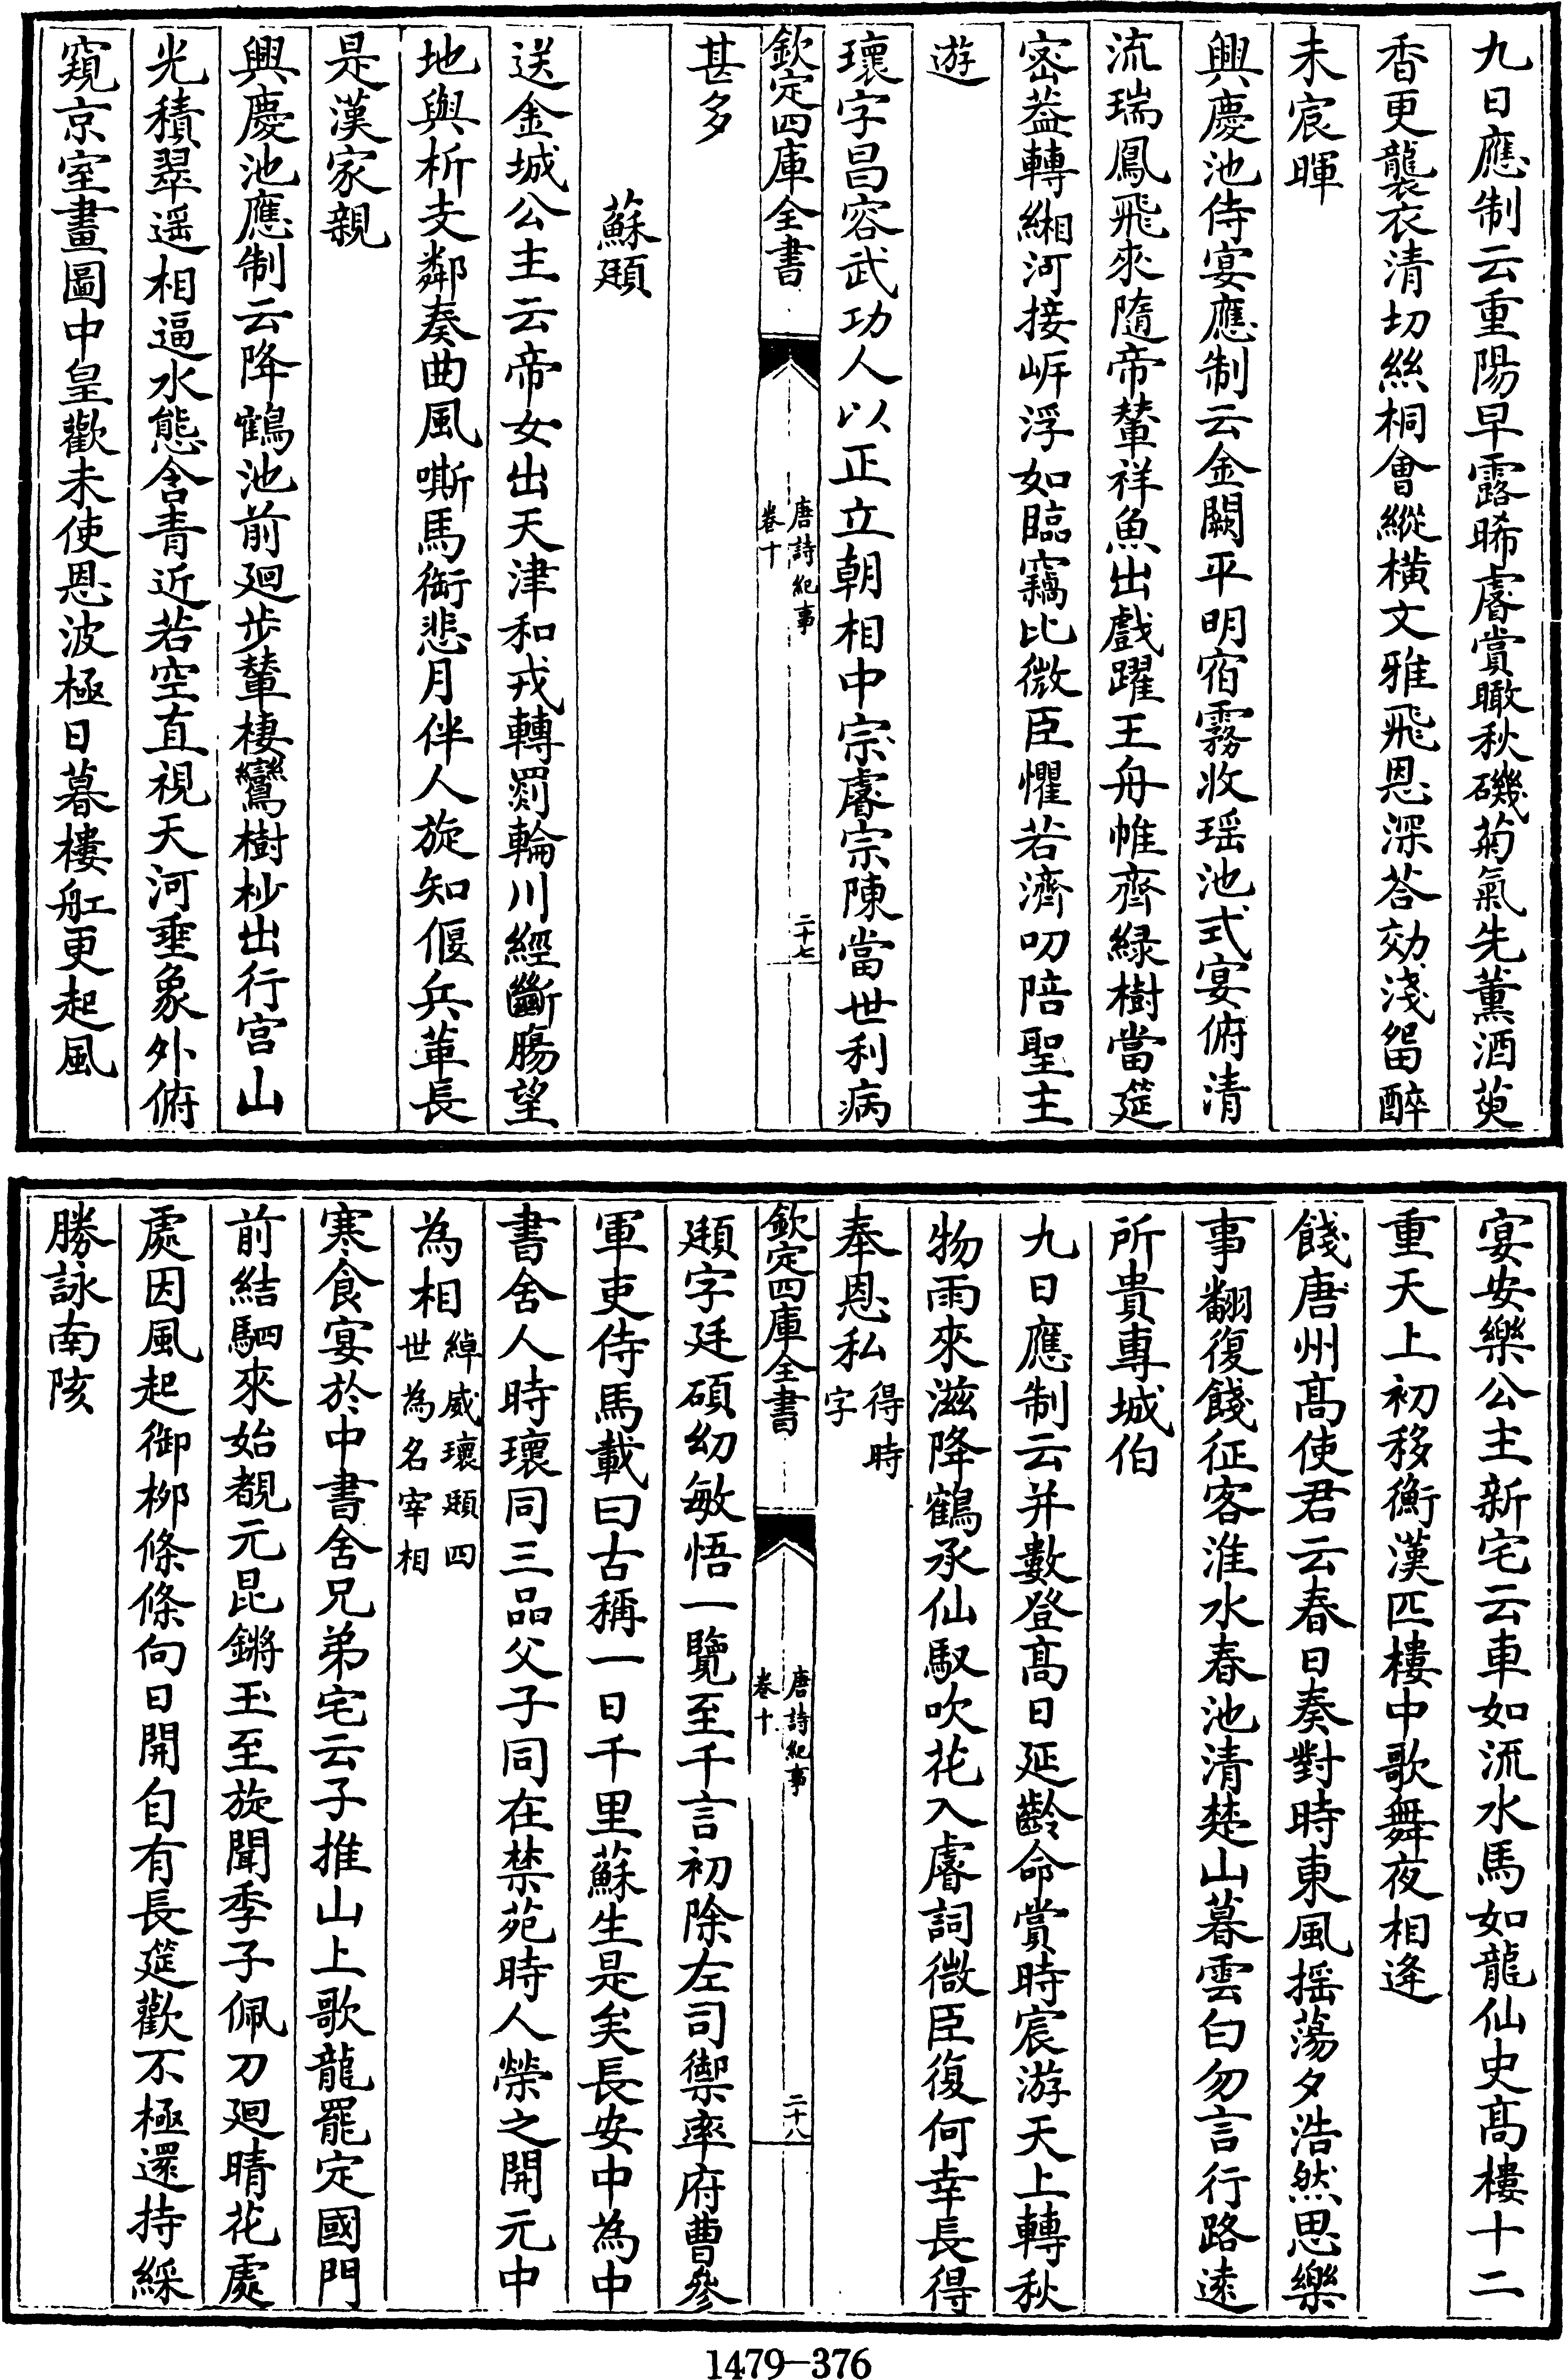 九日應制云重陽早露晞睿賞瞰秋磯菊氣先薰酒萸
香更襲衣清切絲桐會縱橫文雅飛恩深荅効淺留醉
未宸暉
興慶池侍宴應制云金闕平明宿霧收瑶池式宴俯清
流瑞鳳飛來隨帝輦祥魚出戲躍王舟帷齊綠樹當筵
密葢轉緗河接㟁浮如臨竊比微臣懼若濟叨陪聖主
遊
瓌字昌容武功人以正立朝相中宗睿宗陳當世利病
欽定四庫全書
唐詩紀事
卷十
二十七
甚多
蘇頲
送金城公主云帝女出天津和戎轉罽輪川經斷膓望
地與析支鄰奏曲風嘶馬銜悲月伴人旋知偃兵革長
是漢家親
興慶池應制云降鶴池前廻步輦棲鸞樹杪出行宫山
光積翠遥相逼水態含青近若空直視天河垂象外俯
窺京室畫圖中皇歡未使恩波極日暮樓舡更起風
宴安樂公主新宅云車如流水馬如龍仙史髙樓十二
重天上初移衡漢匹樓中歌舞夜相逄
餞唐州髙使君云春日奏對時東風摇蕩夕浩然思樂
事翻復餞征客淮水春池清楚山暮雲白勿言行路逺
所貴專城伯
九日應制云并數登髙日延齡命賞時宸游天上轉秋
物雨來滋降鶴承仙馭吹花入睿詞微臣復何幸長得
奉恩私得時
字
欽定四庫全書
唐詩紀事
卷十
二十八
頲字廷碩幼敏悟一覽至千言初除左司禦率府曹參
軍吏侍馬載曰古稱一日千里蘇生是矣長安中為中
書舍人時瓌同三品父子同在禁苑時人榮之開元中
為相綽威瓌頲四
世為名宰相
寒食宴於中書舍兄弟宅云子推山上歌龍罷定國門
前結駟來始覩元昆鏘玉至旋聞季子佩刀廻晴花處
處因風起御栁條條向日開自有長筵歡不極還持綵
勝詠南陔
1479-376